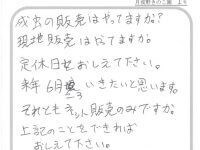 月夜野きのこ園 より
成虫の販売はやってますか?
現地販売はしてますか。
定休日もおしえて下さい。
来年6月頃いきたいと思います。
それともネット販売のみですか。
上記のことをできれば
おしえて下さい。